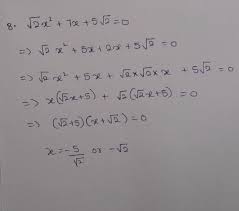 8. √2x² + 7x + 5√2 = 0
=> √2 x² + 5x + 2x + 5√2 = 0
=> √2 x² + 5x + √2 x √2 x x + 5√2 = 0
=> x(√2x+5) + √2 (√2x+5) = 0
=> (√2+5) (x+√2) = 0
x = -5/√2 or -√2